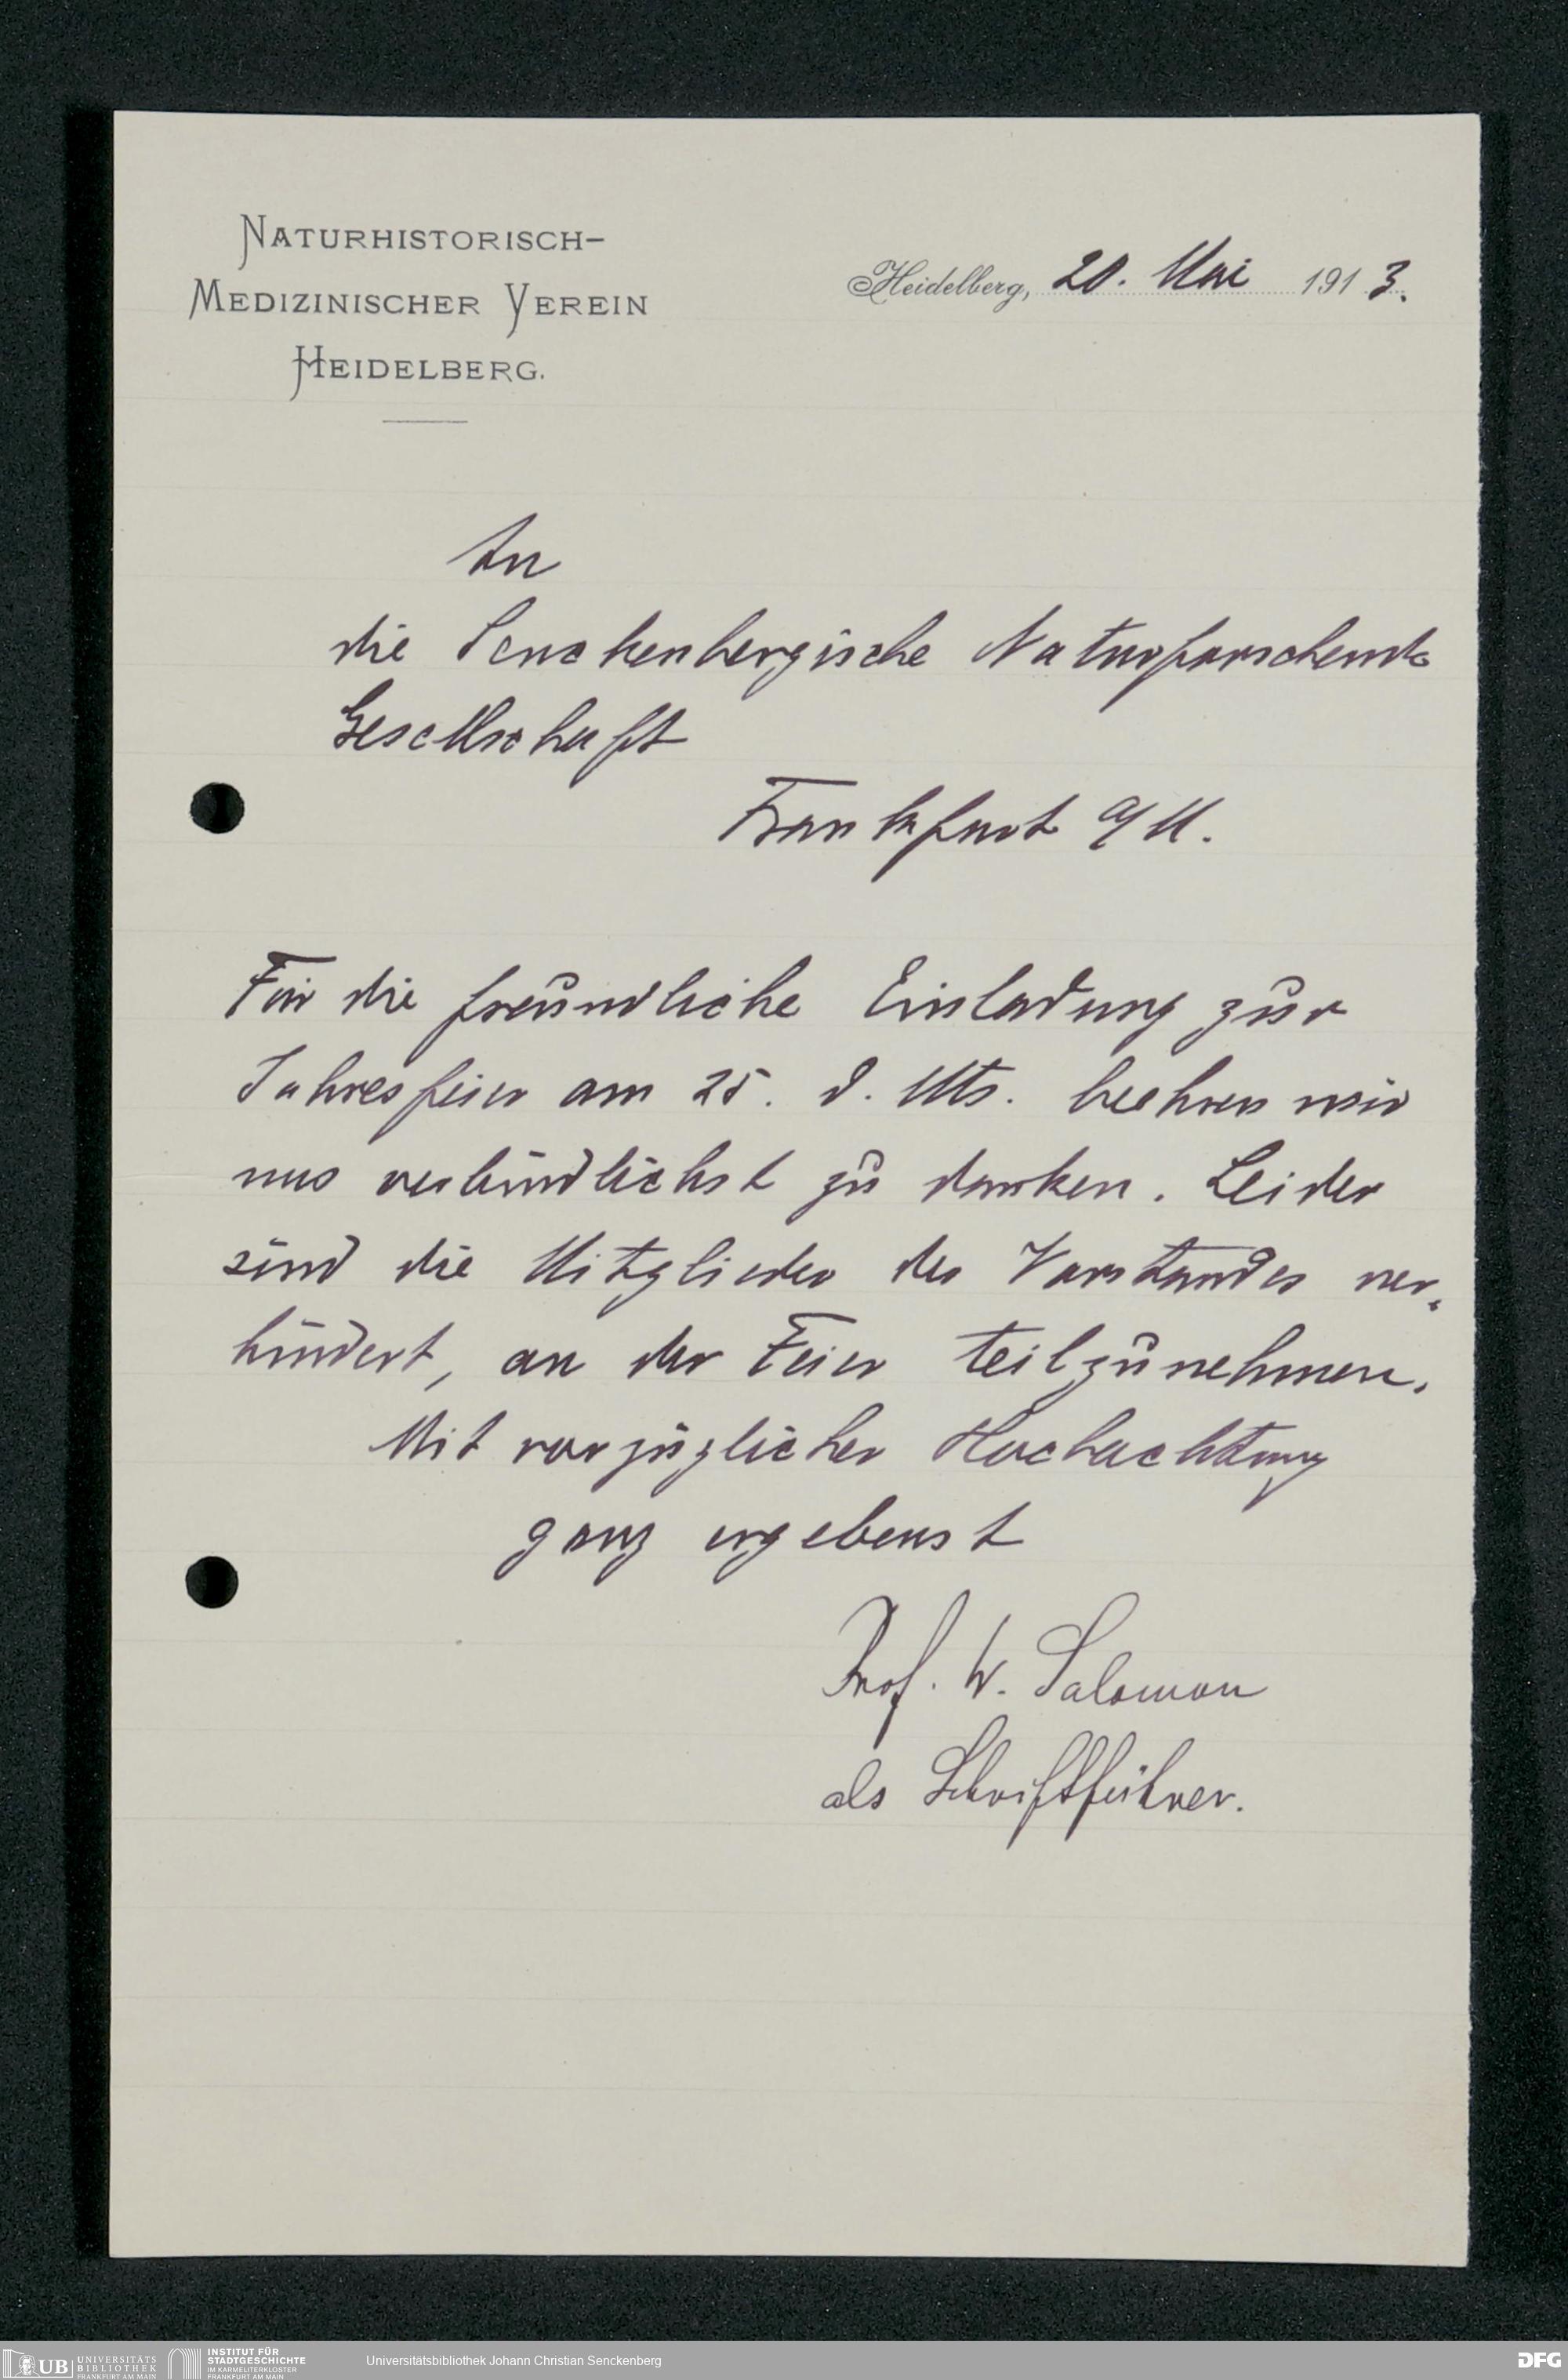 NATURHISTORISCH-
MEDIZINISCHER VEREIN
HEIDELBERG.
Heidelberg, 20. Mai 1913.
An
die Senckenbergische Naturforschende
Gesellschaft
Frankfurt a/M.
Für die freundliche Einladung zur
Jahresfeier am 25. d. Mts. beehren wir
uns verbindlichst zu danken. Leider
sind die Mitglieder des Vorstandes ver-
hindert, an der Feier teilzunehmen.
Mit vorzüglicher Hochachtung
ganz ergebenst
Prof. W. Salomon
als Schriftführer.
UB UNIVERSITÄTS
BIBLIOTHEK
FRANKFURT AM MAIN
INSTITUT FÜR
STADTGESCHICHTE
IM KARMELITERKLOSTER
FRANKFURT AM MAIN
Universitätsbibliothek Johann Christian Senckenberg
DFG